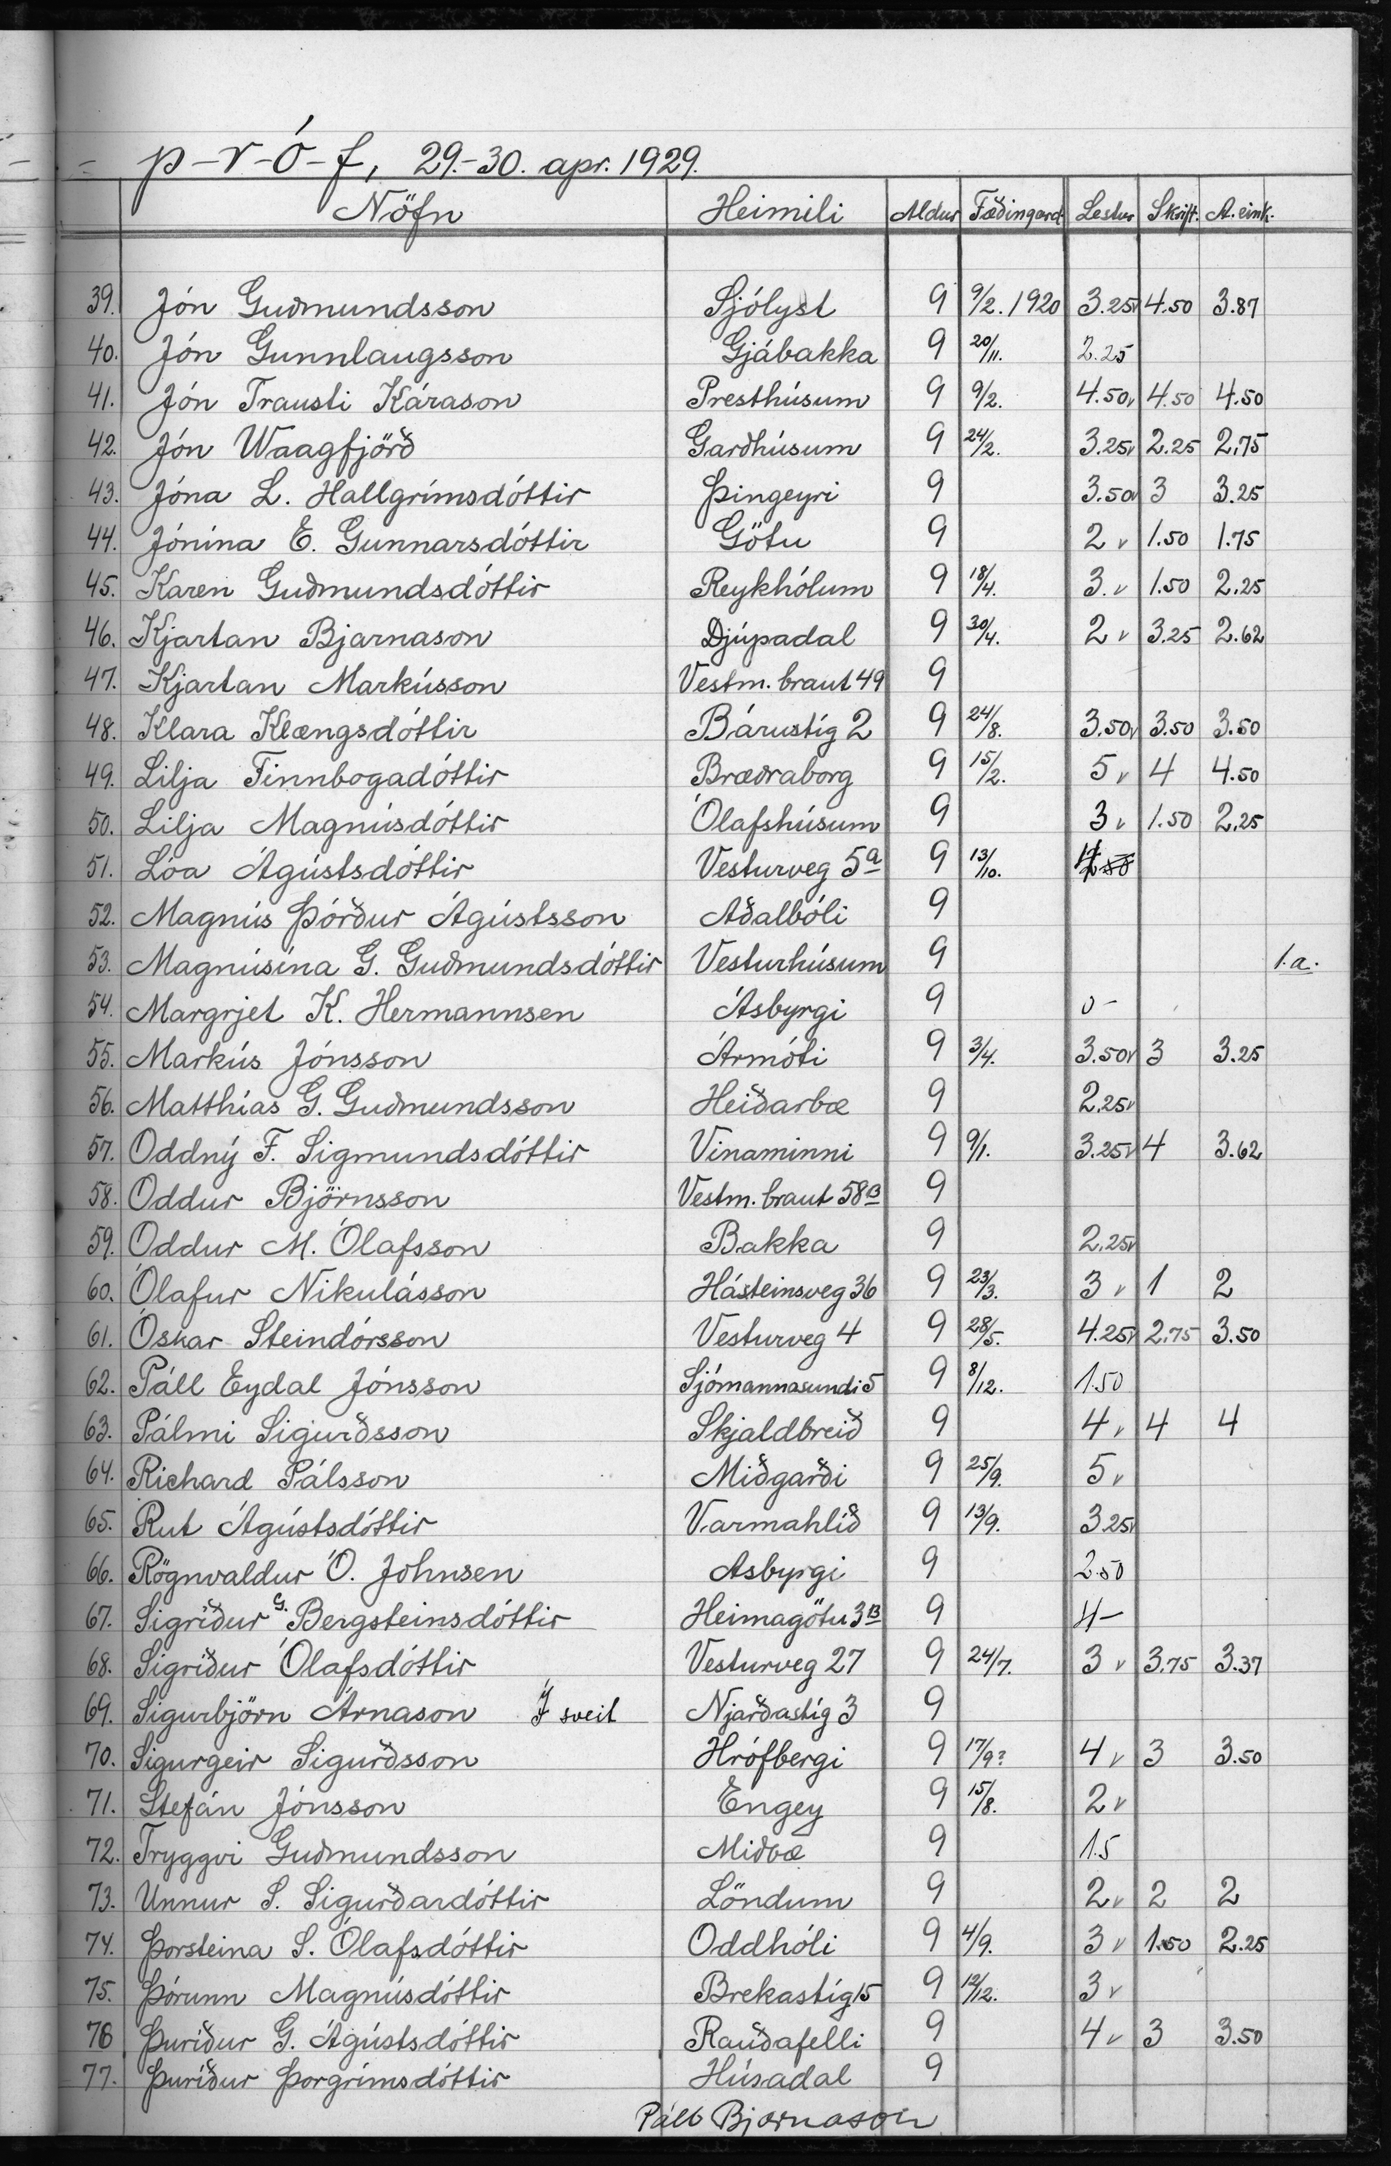 p-r-ó-f, 29.-30. apr. 1929.
Nöfn Heimili Aldur Fæðingard. Lestur Skrift. A. eink.
39. Jón Guðmundsson Sjólyst 9 9/2. 1920 3.25v 4.50 3.87
40. Jón Gunnlaugsson Gjábakka 9 20/11. 2.25
41. Jón Trausti Kárason Presthúsum 9 9/2. 4.50v 4.50 4.50
42. Jón Waagfjörð Garðhúsum 9 24/2. 3.25v 2.25 2.75
43. Jóna L. Hallgrímsdóttir Þingeyri 9 3.50v 3 3.25
44. Jónína E. Gunnarsdóttir Götu 9 2 v 1.50 1.75
45. Karen Guðmundsdóttir Reykhólum 9 18/4. 3. v 1.50 2.25
46. Kjartan Bjarnason Djúpadal 9 30/4. 2 v 3.25 2.62
47. Kjartan Markússon Vestm. braut 49 9
48. Klara Klængsdóttir Bárustíg 2 9 24/8. 3.50v 3.50 3.50
49. Lilja Finnbogadóttir Bræðraborg 9 15/2. 5 v 4 4.50
50. Lilja Magnúsdóttir Ólafshúsum 9 3 v 1.50 2.25
51. Lóa Ágústsdóttir Vesturveg 5a 9 13/10.
52. Magnús Þórður Ágústsson Aðalbóli 9
53. Magnúsína G. Guðmundsdóttir Vesturhúsum 9 1.a.
54. Margrjet K. Hermannsen Ásbyrgi 9 0 -
55. Markús Jónsson Ármóti 9 3/4. 3.50v 3 3.25
56. Matthías G. Guðmundsson Heiðarbæ 9 2.25v
57. Oddný F. Sigmundsdóttir Vinaminni 9 9/1. 3.25v 4 3.62
58. Oddur Björnsson Vestm. braut 58B 9
59. Oddur M. Ólafsson Bakka 9 2.25v
60. Ólafur Nikulásson Hásteinsveg 36 9 23/3. 3 v 1 2
61. Óskar Steindórsson Vesturveg 4 9 28/5. 4.25v 2.75 3.50
62. Páll Eydal Jónsson Sjómannasundi 5 9 8/12. 1.50
63. Pálmi Sigurðsson Skjaldbreið 9 4 v 4 4
64. Richard Pálsson Miðgarði 9 25/9. 5 v
65. Rut Ágústsdóttir Varmahlíð 9 13/9. 3 25v
66. Rögnvaldur Ó. Johnsen Asbyrgi 9 2.50
67. Sigríður G. Bergsteinsdóttir Heimagötu 3B 9 4 -
68. Sigríður Ólafsdóttir Vesturveg 27 9 24/7. 3 v 3.75 3.37
69. Sigurbjörn Árnason Í sveit Njarðastíg 3 9
70. Sigurgeir Sigurðsson Hrófbergi 9 17/9? 4 v 3 3.50
71. Stefán Jónsson Engey 9 15/8. 2 v
72. Tryggvi Guðmundsson Miðbæ 9 1.5
73. Unnur S. Sigurðardóttir Löndum 9 2 v 2 2
74. Þorsteina S. Ólafsdóttir Oddhóli 9 4/9. 3 v 1.50 2.25
75. Þórunn Magnúsdóttir Brekastíg 15 9 12/12. 3 v
76 Þuríður G. Ágústsdóttir Rauðafelli 9 4 v 3 3.50
77. Þuríður Þorgrímsdóttir Húsadal 9
Páll Bjarnason